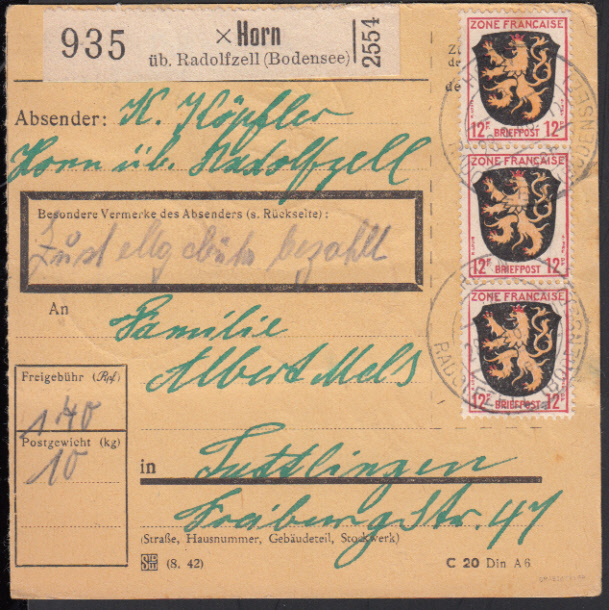 935
× Horn
üb. Radolfzell (Bodensee)
2554
Absender: K. Köpfler
Horn üb. Radolfzell
Besondere Vermerke des Absenders (s. Rückseite):
Zustellgebühr bezahlt
An Familie
Albert Mels
Freigebühr (Rpf)
1.40
Postgewicht (kg)
10
in Tuttlingen
Freiburg Str. 47
(Straße, Hausnummer, Gebäudeteil, Stockwerk)
(8. 42)
C 20 Din A6
ZONE FRANÇAISE
12F BRIEFPOST 12F
ZONE FRANÇAISE
12F BRIEFPOST 12F
ZONE FRANÇAISE
12F BRIEFPOST 12F